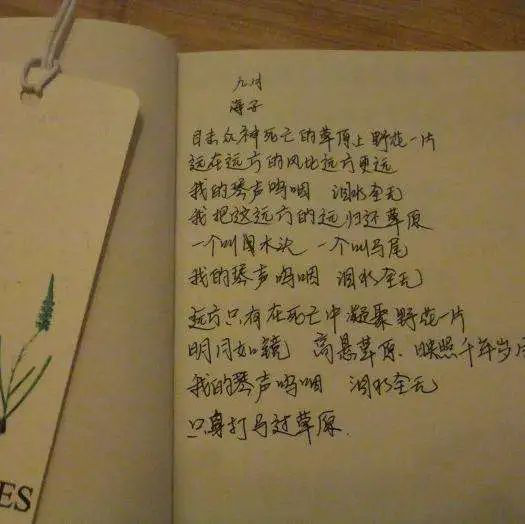 九月
海子
目击众神死亡的草原上野花一片
远在远方的风比远方更远
我的琴声呜咽 泪水全无
我把这远方的远归还草原
一个叫木头 一个叫马尾
我的琴声呜咽 泪水全无
远方只有在死亡中凝聚野花一片
明月如镜 高悬草原,映照千年岁月
我的琴声呜咽 泪水全无
只身打马过草原.
ES